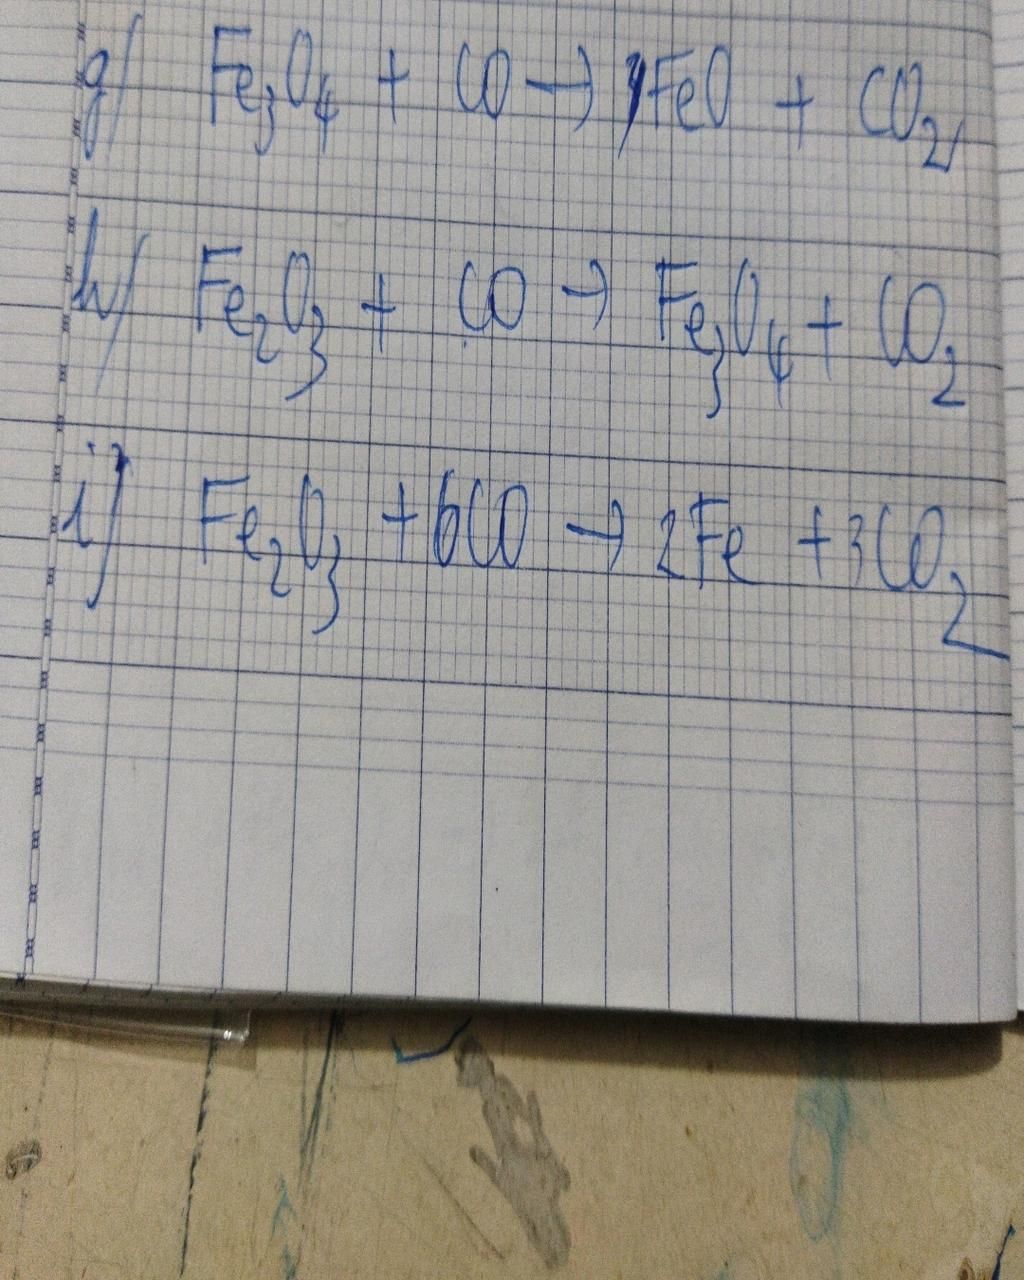 g/ Fe₃O₄ + CO → FeO + CO₂
h/ Fe₂O₃ + CO → Fe₃O₄ + CO₂
i/ Fe₂O₃ + 6CO → 2Fe + 3CO₂